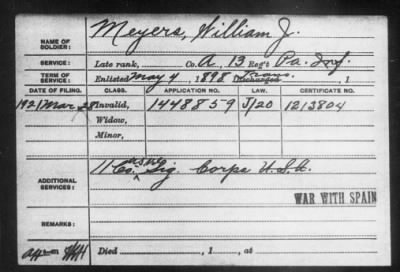 NAME OF SOLDIER: Meyers, William J.
SERVICE: Late rank, Co. A, 13 Reg't Pa. Inf.
TERM OF SERVICE: Enlisted May 4, 1898 Trans. Discharged , 1
DATE OF FILING. CLASS. APPLICATION NO. LAW. CERTIFICATE NO.
1921 Mar 28 Invalid, 1448859 J/20 1213804
Widow,
Minor,
ADDITIONAL SERVICES: 11 Co. Sig. Corps U.S.A.
WAR WITH SPAIN
REMARKS:
Died , 1 , at